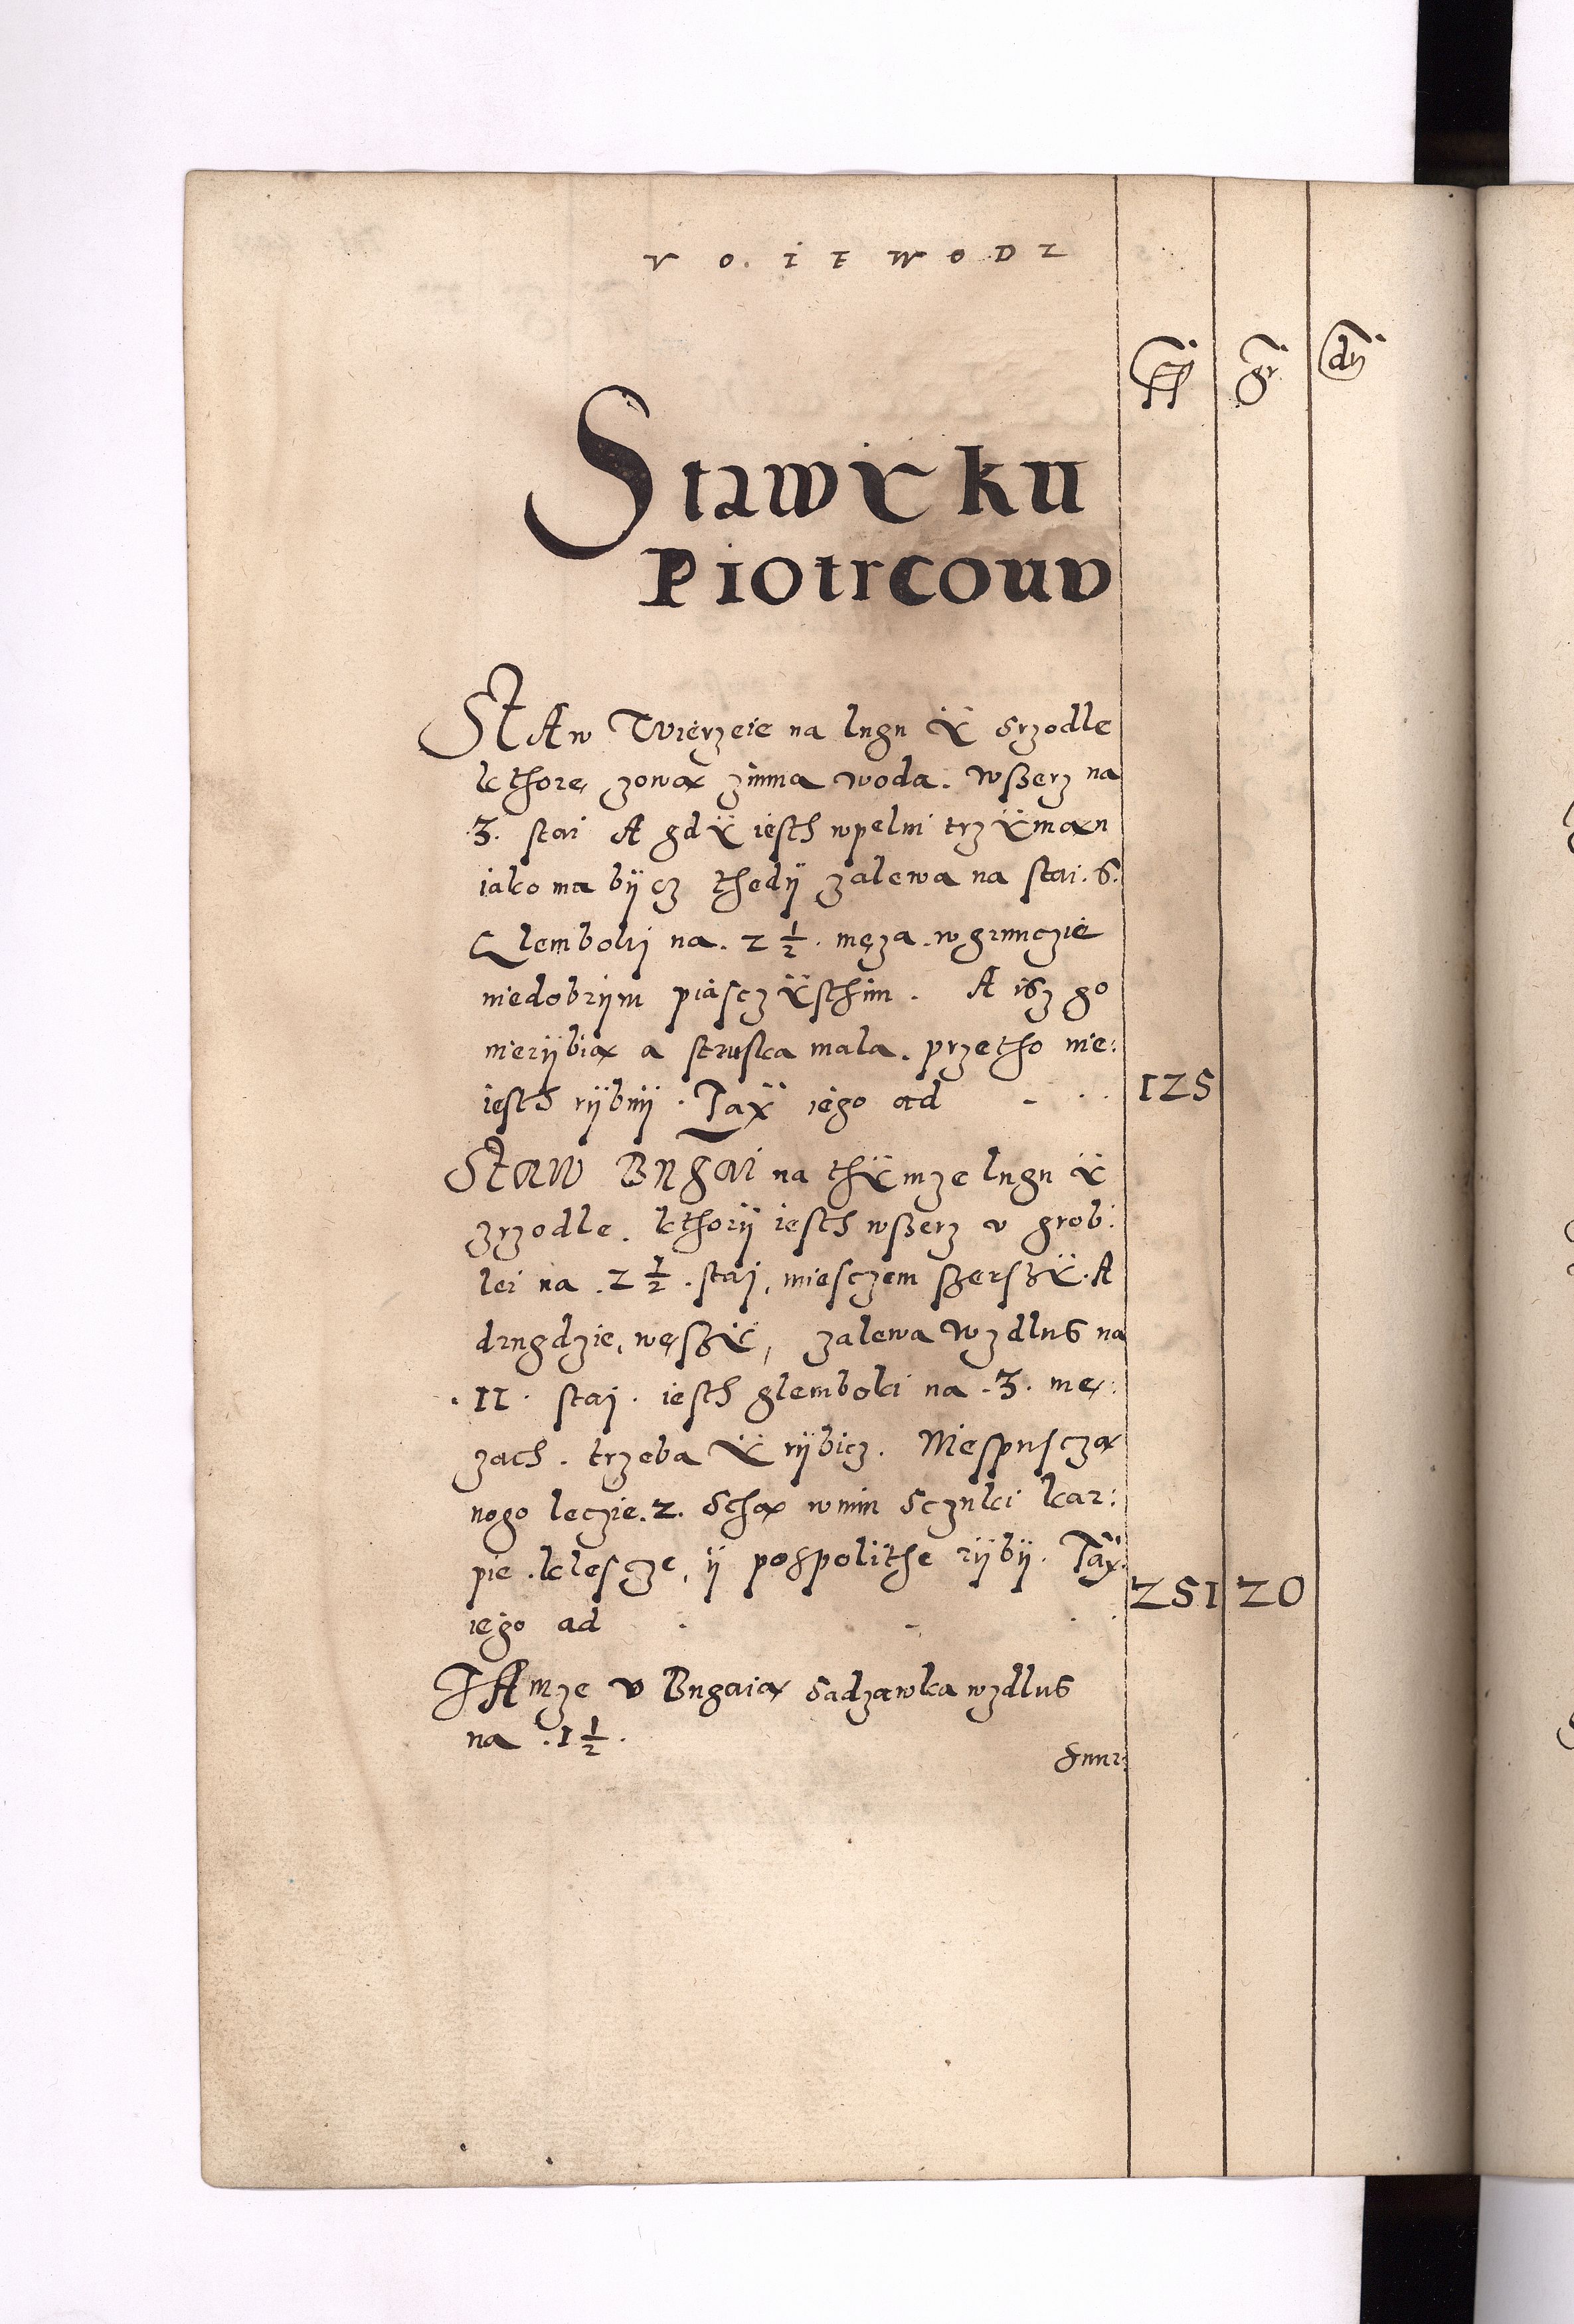 V O. I E W O D Z
ff gr dn
Stawy ku
Piotrcouu
STAw Wierzeie na lugu ÿ Srzodle
kthore, zową zimna woda. wßerz na
.3. stai A gdÿ iesth wpelni trzÿman
iako ma bÿcz thedÿ zalewa na stai. 6.
Glemboki na. 2 1/2. męza. w grunczie
niedobrÿm piasczÿsthim. A isz go
nierÿbią a struska mala. przetho nie:
iesth rÿbnÿ. Tax iego ad - . . 125
Staw Bugai na thÿmze lugu ÿ
zrzodle. kthorÿ iesth wßerz v grob:
lei na. 2 1/2. stai, miesczem ßerszÿ. A
drugdzie, węßÿ, zalewa wzdlus na
. 11. stai. iesth glemboki na. 3. me,:
zach. trzeba ÿ rÿbicz. Niespusczą
nogo leczie. 2. Sthą wnim Sczuki kar:
pie. klescze, ÿ pospolithe rÿbÿ. Tax.
iego ad . - . . 251 20
TAmze v Bugaią Sadzawka wzdlus
na . 1 1/2.
Snur: